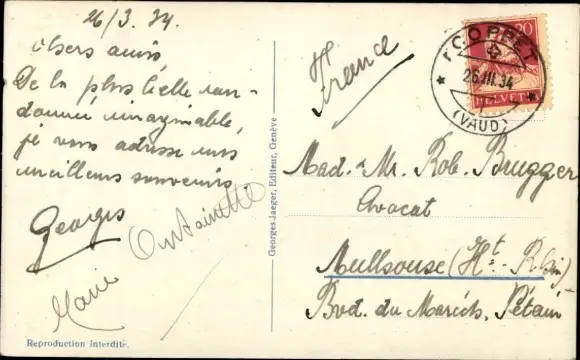 26/3. 34.
Chers amis,
De la plus belle ran-
donnée imaginable,
je vous adresse mes
meilleurs souvenirs
Georges
Marie Antoinette
Reproduction Interdite.
Georges Jaeger, Editeur, Genève
France
20
HELVETIA
COPPET
26.III.34
(VAUD)
Mad. & Mr. Rob. Brugger
Avocat
Mulhouse (Ht. Rhin)
Bvd. du Maréch. Pétain